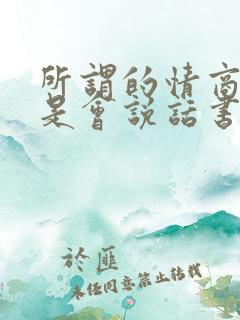 所謂的情商
是會説話書
於匪
未經同意禁止轉載